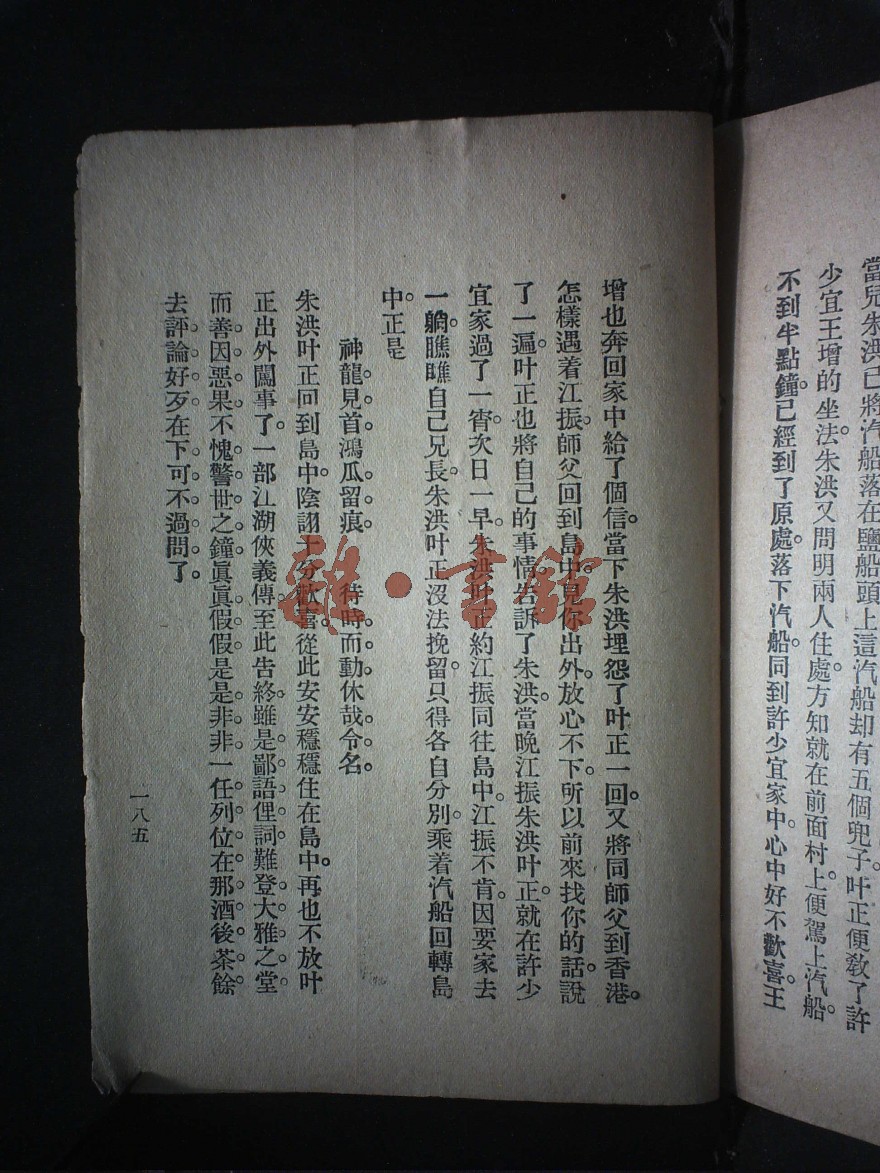 當兒朱洪已將汽船落在鹽船頭上這汽船却有五個兜子叶正便教了許
少宜王增的坐法朱洪又問明兩人住處方知就在前面村上便駕上汽船。
不到半點鐘已經到了原處落下汽船同到許少宜家中心中好不歡喜王
增也奔回家中給了個信當下朱洪埋怨了叶正一回又將同師父到香港。
怎樣遇着江振師父回到島中見你出外放心不下所以前來找你的話說
了一遍叶正也將自己的事情告訴了朱洪當晚江振朱洪叶正就在許少
宜家過了一宵次日一早朱洪叶正約江振同往島中江振不肯因要家去
一躺瞧瞧自己兄長朱洪叶正沒法挽留只得各自分別乘着汽船回轉島
中。正是
神龍見首鴻瓜留痕　待時而動休哉令名
朱洪叶正回到島中陰詡十分歡喜從此安安穩穩住在島中再也不放叶
正出外闖事了一部江湖俠義傳至此告終雖是鄙語俚詞難登大雅之堂
而善因惡果不愧警世之鐘眞眞假假是是非非一任列位在那酒後茶餘
去評論好歹在下可不過問了。
一八五
雜·書館